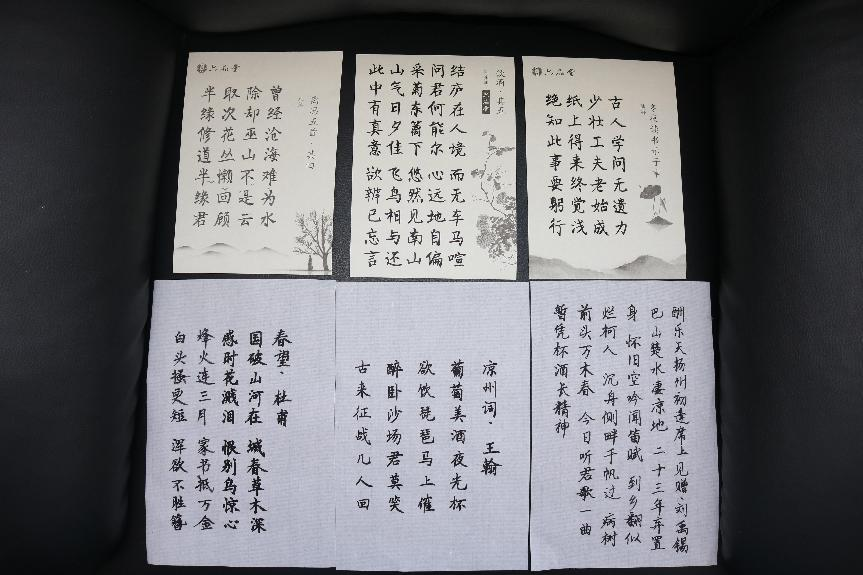 六品堂
离思五首·其四
曾经沧海难为水
除却巫山不是云
取次花丛懒回顾
半缘修道半缘君
饮酒·其五
结庐在人境 而无车马喧
问君何能尔 心远地自偏
采菊东篱下 悠然见南山
山气日夕佳 飞鸟相与还
此中有真意 欲辨已忘言
六品堂
冬夜读书示子聿
古人学问无遗力
少壮工夫老始成
纸上得来终觉浅
绝知此事要躬行
春望·杜甫
国破山河在 城春草木深
感时花溅泪 恨别鸟惊心
烽火连三月 家书抵万金
白头搔更短 浑欲不胜簪
凉州词·王翰
葡萄美酒夜光杯
欲饮琵琶马上催
醉卧沙场君莫笑
古来征战几人回
酬乐天扬州初逢席上见赠·刘禹锡
巴山楚水凄凉地 二十三年弃置
身 怀旧空吟闻笛赋 到乡翻似
烂柯人 沉舟侧畔千帆过 病树
前头万木春 今日听君歌一曲
暂凭杯酒长精神